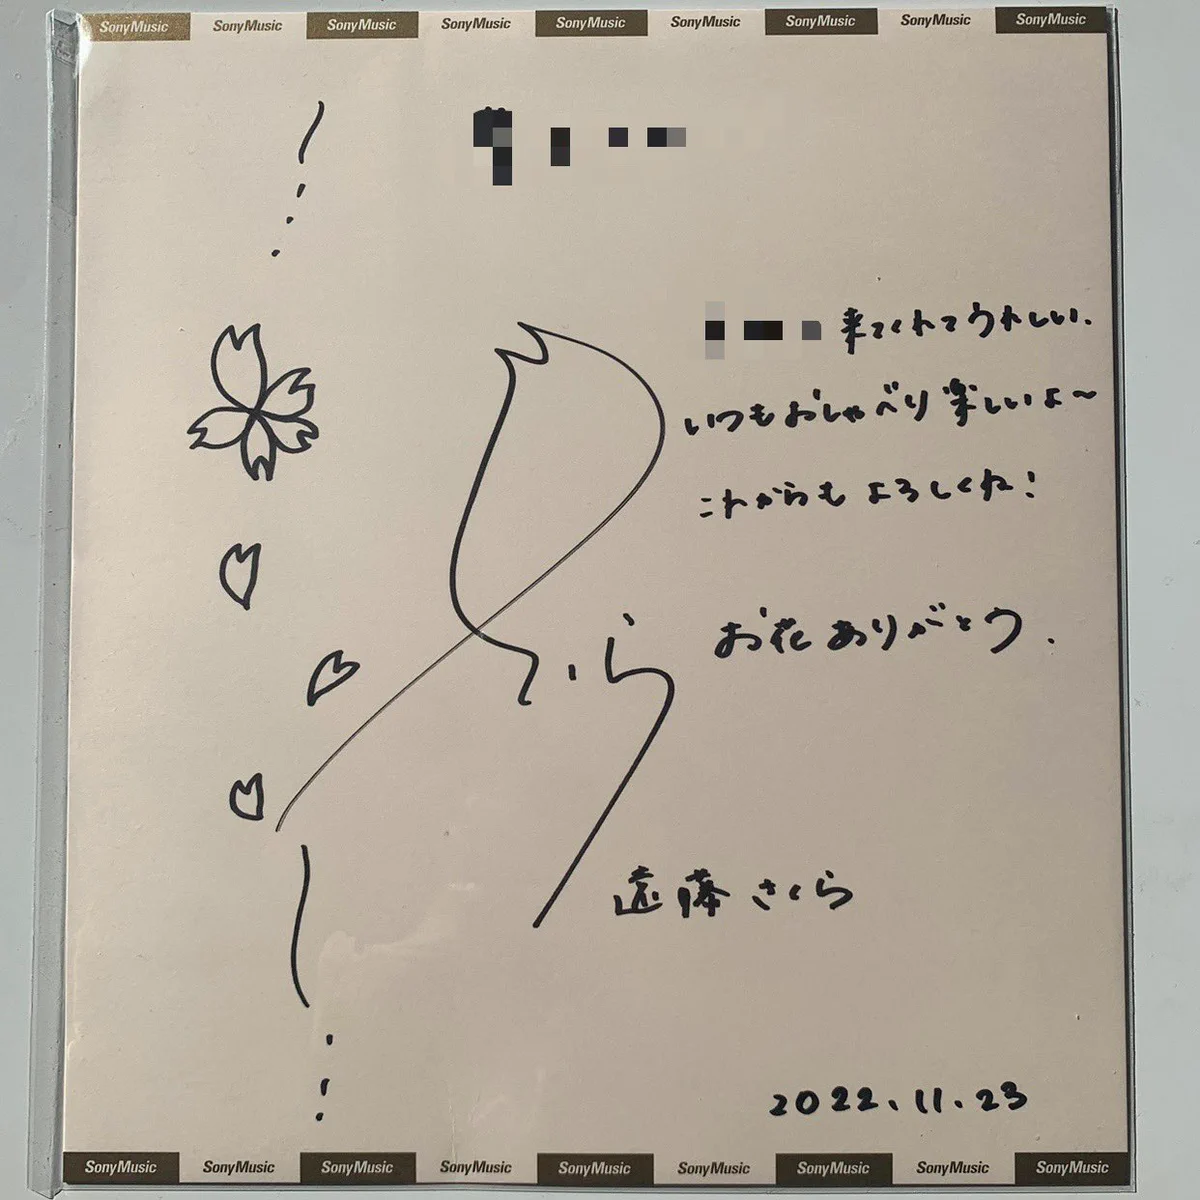 SonyMusic SonyMusic SonyMusic SonyMusic SonyMusic SonyMusic SonyMusic SonyMusic SonyMusic
来てくれてうれしい.
いつもおしゃべり楽しいよ〜
これからもよろしくね!
お花ありがとう.
さくら
遠藤さくら
2022.11.23
SonyMusic SonyMusic SonyMusic SonyMusic SonyMusic SonyMusic SonyMusic SonyMusic SonyMusic